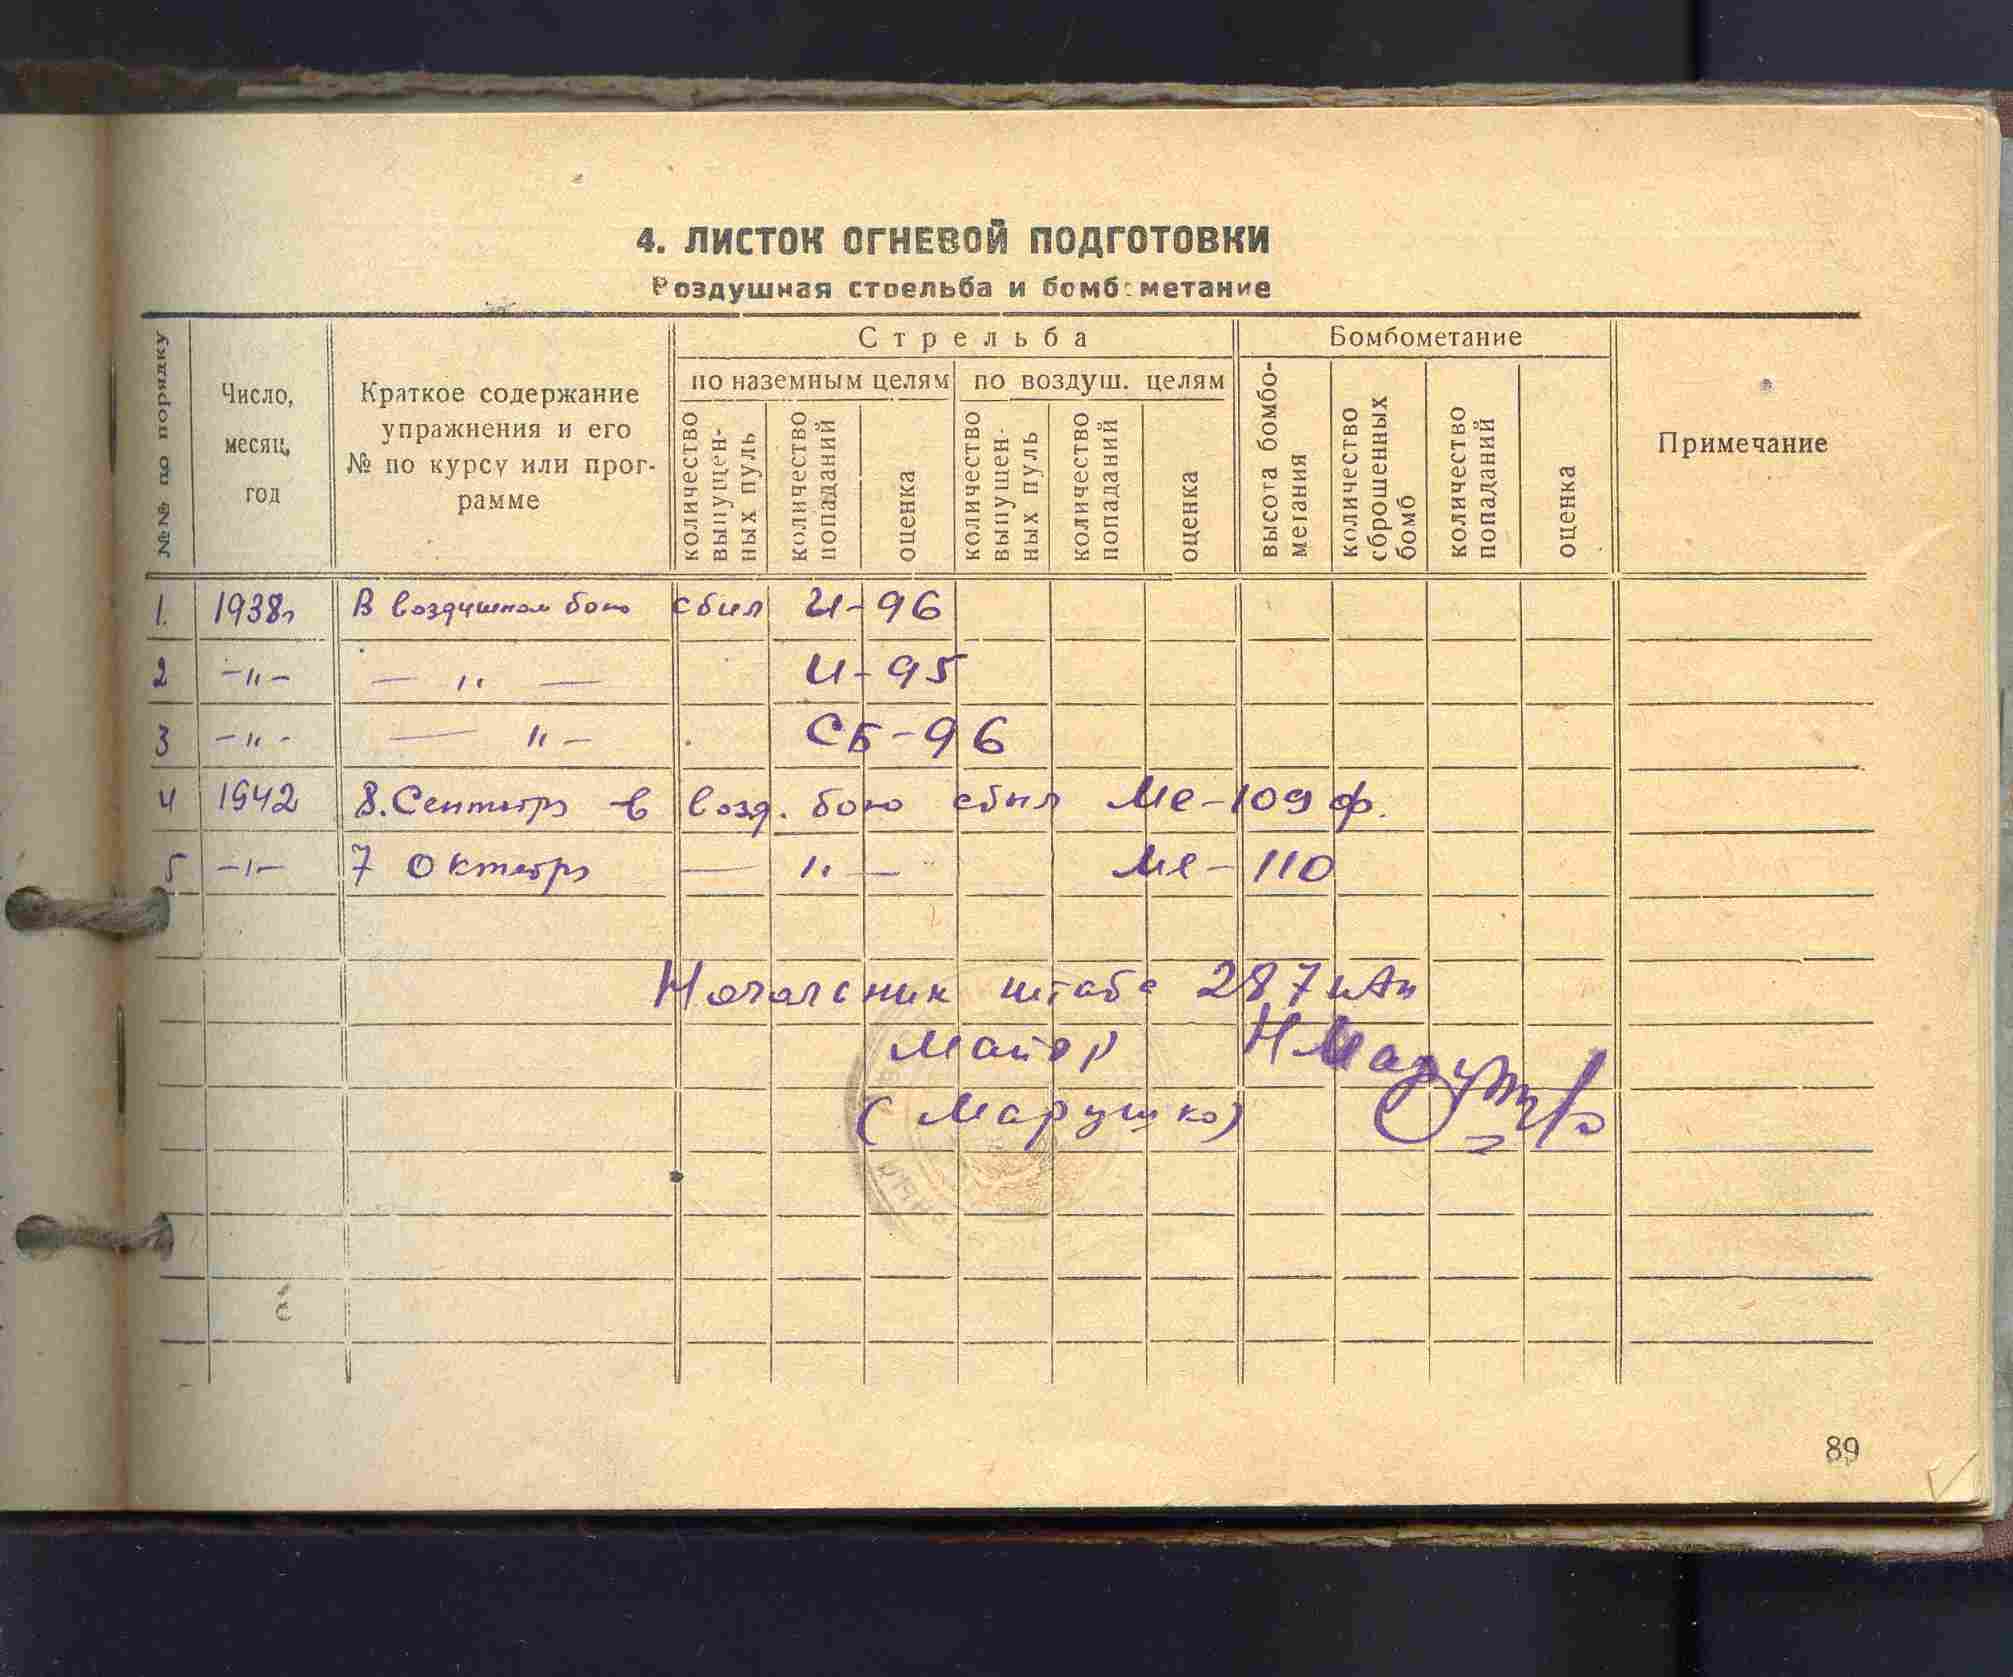 4. ЛИСТОК ОГНЕВОЙ ПОДГОТОВКИ
Воздушная стрельба и бомбометание
№№ по порядку
Число, месяц, год
Краткое содержание упражнения и его № по курсу или программе
Стрельба
по наземным целям
количество выпущенных пуль
количество попаданий
оценка
по воздуш. целям
количество выпущенных пуль
количество попаданий
оценка
Бомбометание
высота бомбометания
количество сброшенных бомб
количество попаданий
оценка
Примечание
1. 1938г В воздушном бою сбил И-96
2 -"- - " - И-95
3 -"- - " - СБ-96
4 1942 8. Сентября в возд. бою сбил Ме-109ф.
5 -"- 7 Октября - " - Ме-110
Начальник штаба 287 иАп
Майор НМарушко
(Марушко)
89